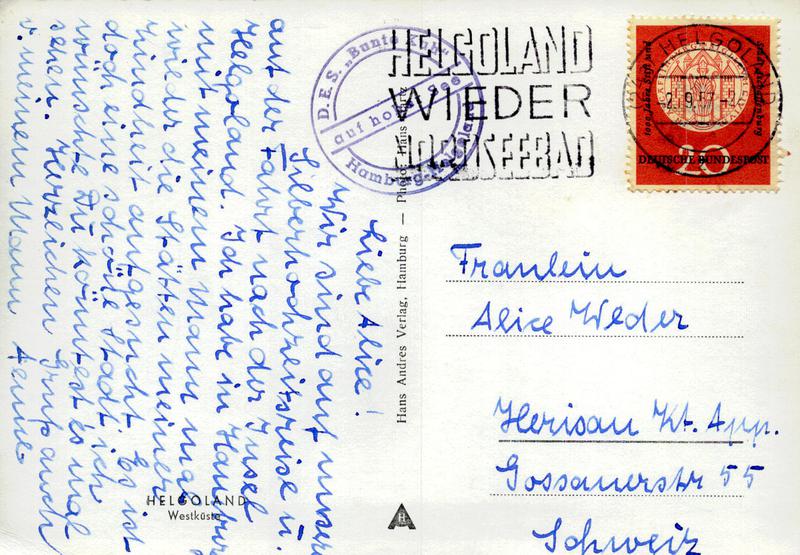 Liebe Alice!
Wir sind auf unserer
Silberhochzeitsreise u.
auf der Fahrt nach der Insel
Helgoland. Ich habe in Hamburg
mit meinem Mann mal
wieder die Stätten meiner
Kindheit aufgesucht. Es ist
doch eine schöne Stadt, ich
wünschte Du könntest es mal
sehen. Herzlichen Gruß auch
v. meinem Mann
HELGOLAND
Westküste
Hans Andres Verlag, Hamburg — Photo: Hans
D.E.S. „Bunte Kuh"
auf hoher See
Hamburg-Helgoland
HELGOLAND
WIEDER
NORDSEEBAD
HELGOLAND
-2.9.57
DEUTSCHE BUNDESPOST
20
1000 Jahre Stift und
Fräulein
Alice Weder
Herisau Kt. App.
Gossauerstr 55
Schweiz